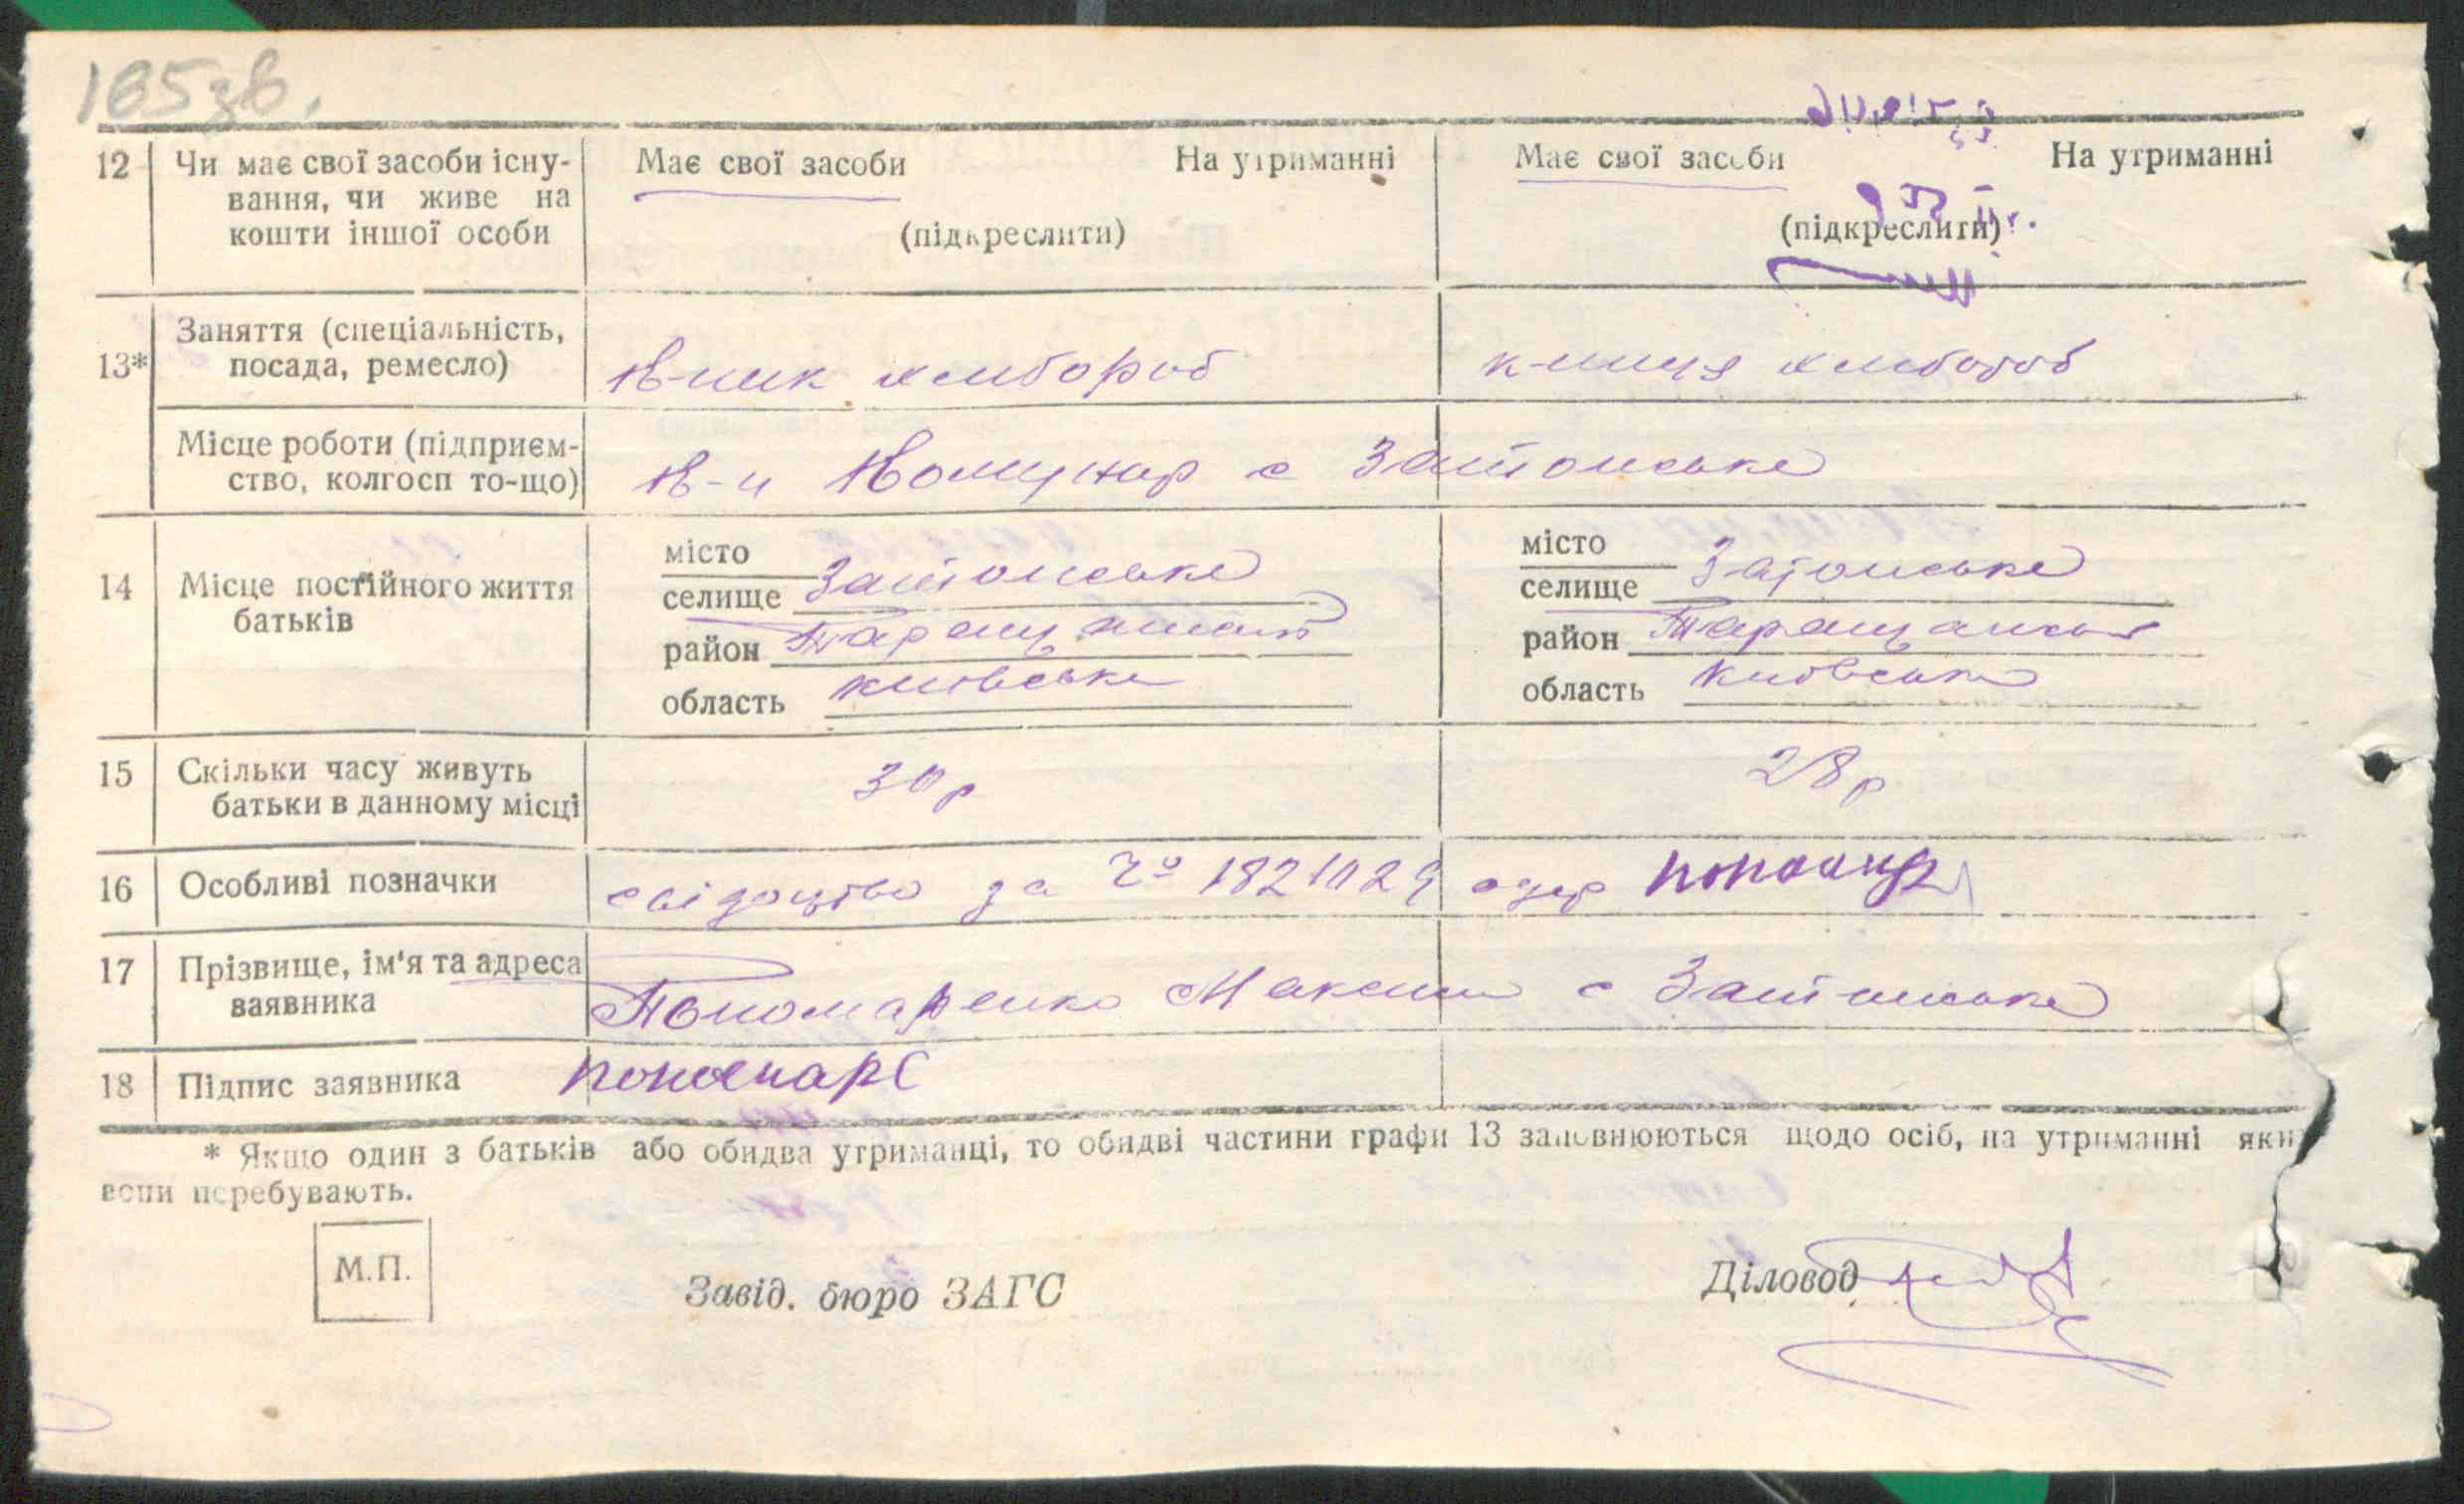 165 зв.
12 Чи має свої засоби існу- Має свої засоби На утриманні Має свої засоби На утриманні
вання, чи живе на
кошти іншої особи (підкреслити) (підкреслити)
Заняття (спеціальність,
13* посада, ремесло) к-ник хлібороб к-ниця хлібороб
Місце роботи (підприєм-
ство, колгосп то-що) к-п Комунар с Затонське
14 Місце постійного життя
батьків
місто
селище Затонське
район Таращанський
область Київська
місто
селище Затонське
район Таращанськ
область Київська
15 Скільки часу живуть 30 р 28 р
батьки в данному місці
16 Особливі позначки свідоцтво за № 1821029 одер
17 Прізвище, ім'я та адреса
заявника Пономаренко Максим с Затонське
18 Підпис заявника Пономарє
* Якщо один з батьків або обидва утриманці, то обидві частини графи 13 заповнюються щодо осіб, на утриманні яки
вони перебувають.
М.П.
Завід. бюро ЗАГС Діловод